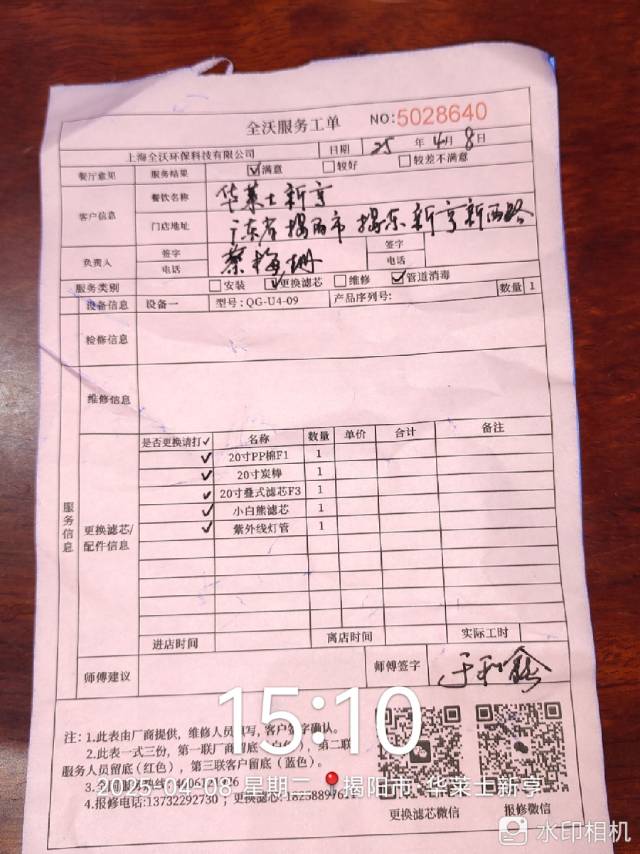 全沃服务工单 NO:5028640
上海全沃环保科技有限公司 日期 25 年 4月 8日
餐厅意见 服务结果 ☑满意 □较好 □较差不满意
客户信息 餐饮名称 华莱士新亨
门店地址 广东省揭阳市揭东新亨新西路
负责人 签字 蔡梅珊 签字
电话 电话
服务类别 □安装 ☑更换滤芯 □维修 ☑管道消毒
设备信息 设备一 型号:QG-U4-09 产品序列号: 数量 1
服务信息
检修信息
维修信息
更换滤芯/配件信息
是否更换请打✓ 名称 数量 单价 合计 备注
✓ 20寸PP棉F1 1
✓ 20寸炭棒 1
✓ 20寸叠式滤芯F3 1
✓ 小白熊滤芯 1
✓ 紫外线灯管 1
进店时间 离店时间 实际工时
师傅建议 师傅签字
15:10
注:1.此表由厂商提供,维修人员填写,客户签字确认。
2.此表一式三份,第一联厂商留底(白色),第二联
服务人员留底(红色),第三联客户留底(蓝色)。
4.报修电话:13732292730;更换滤芯:
2025-04-08 星期二 揭阳市·华莱士新亨
更换滤芯微信 报修微信
水印相机